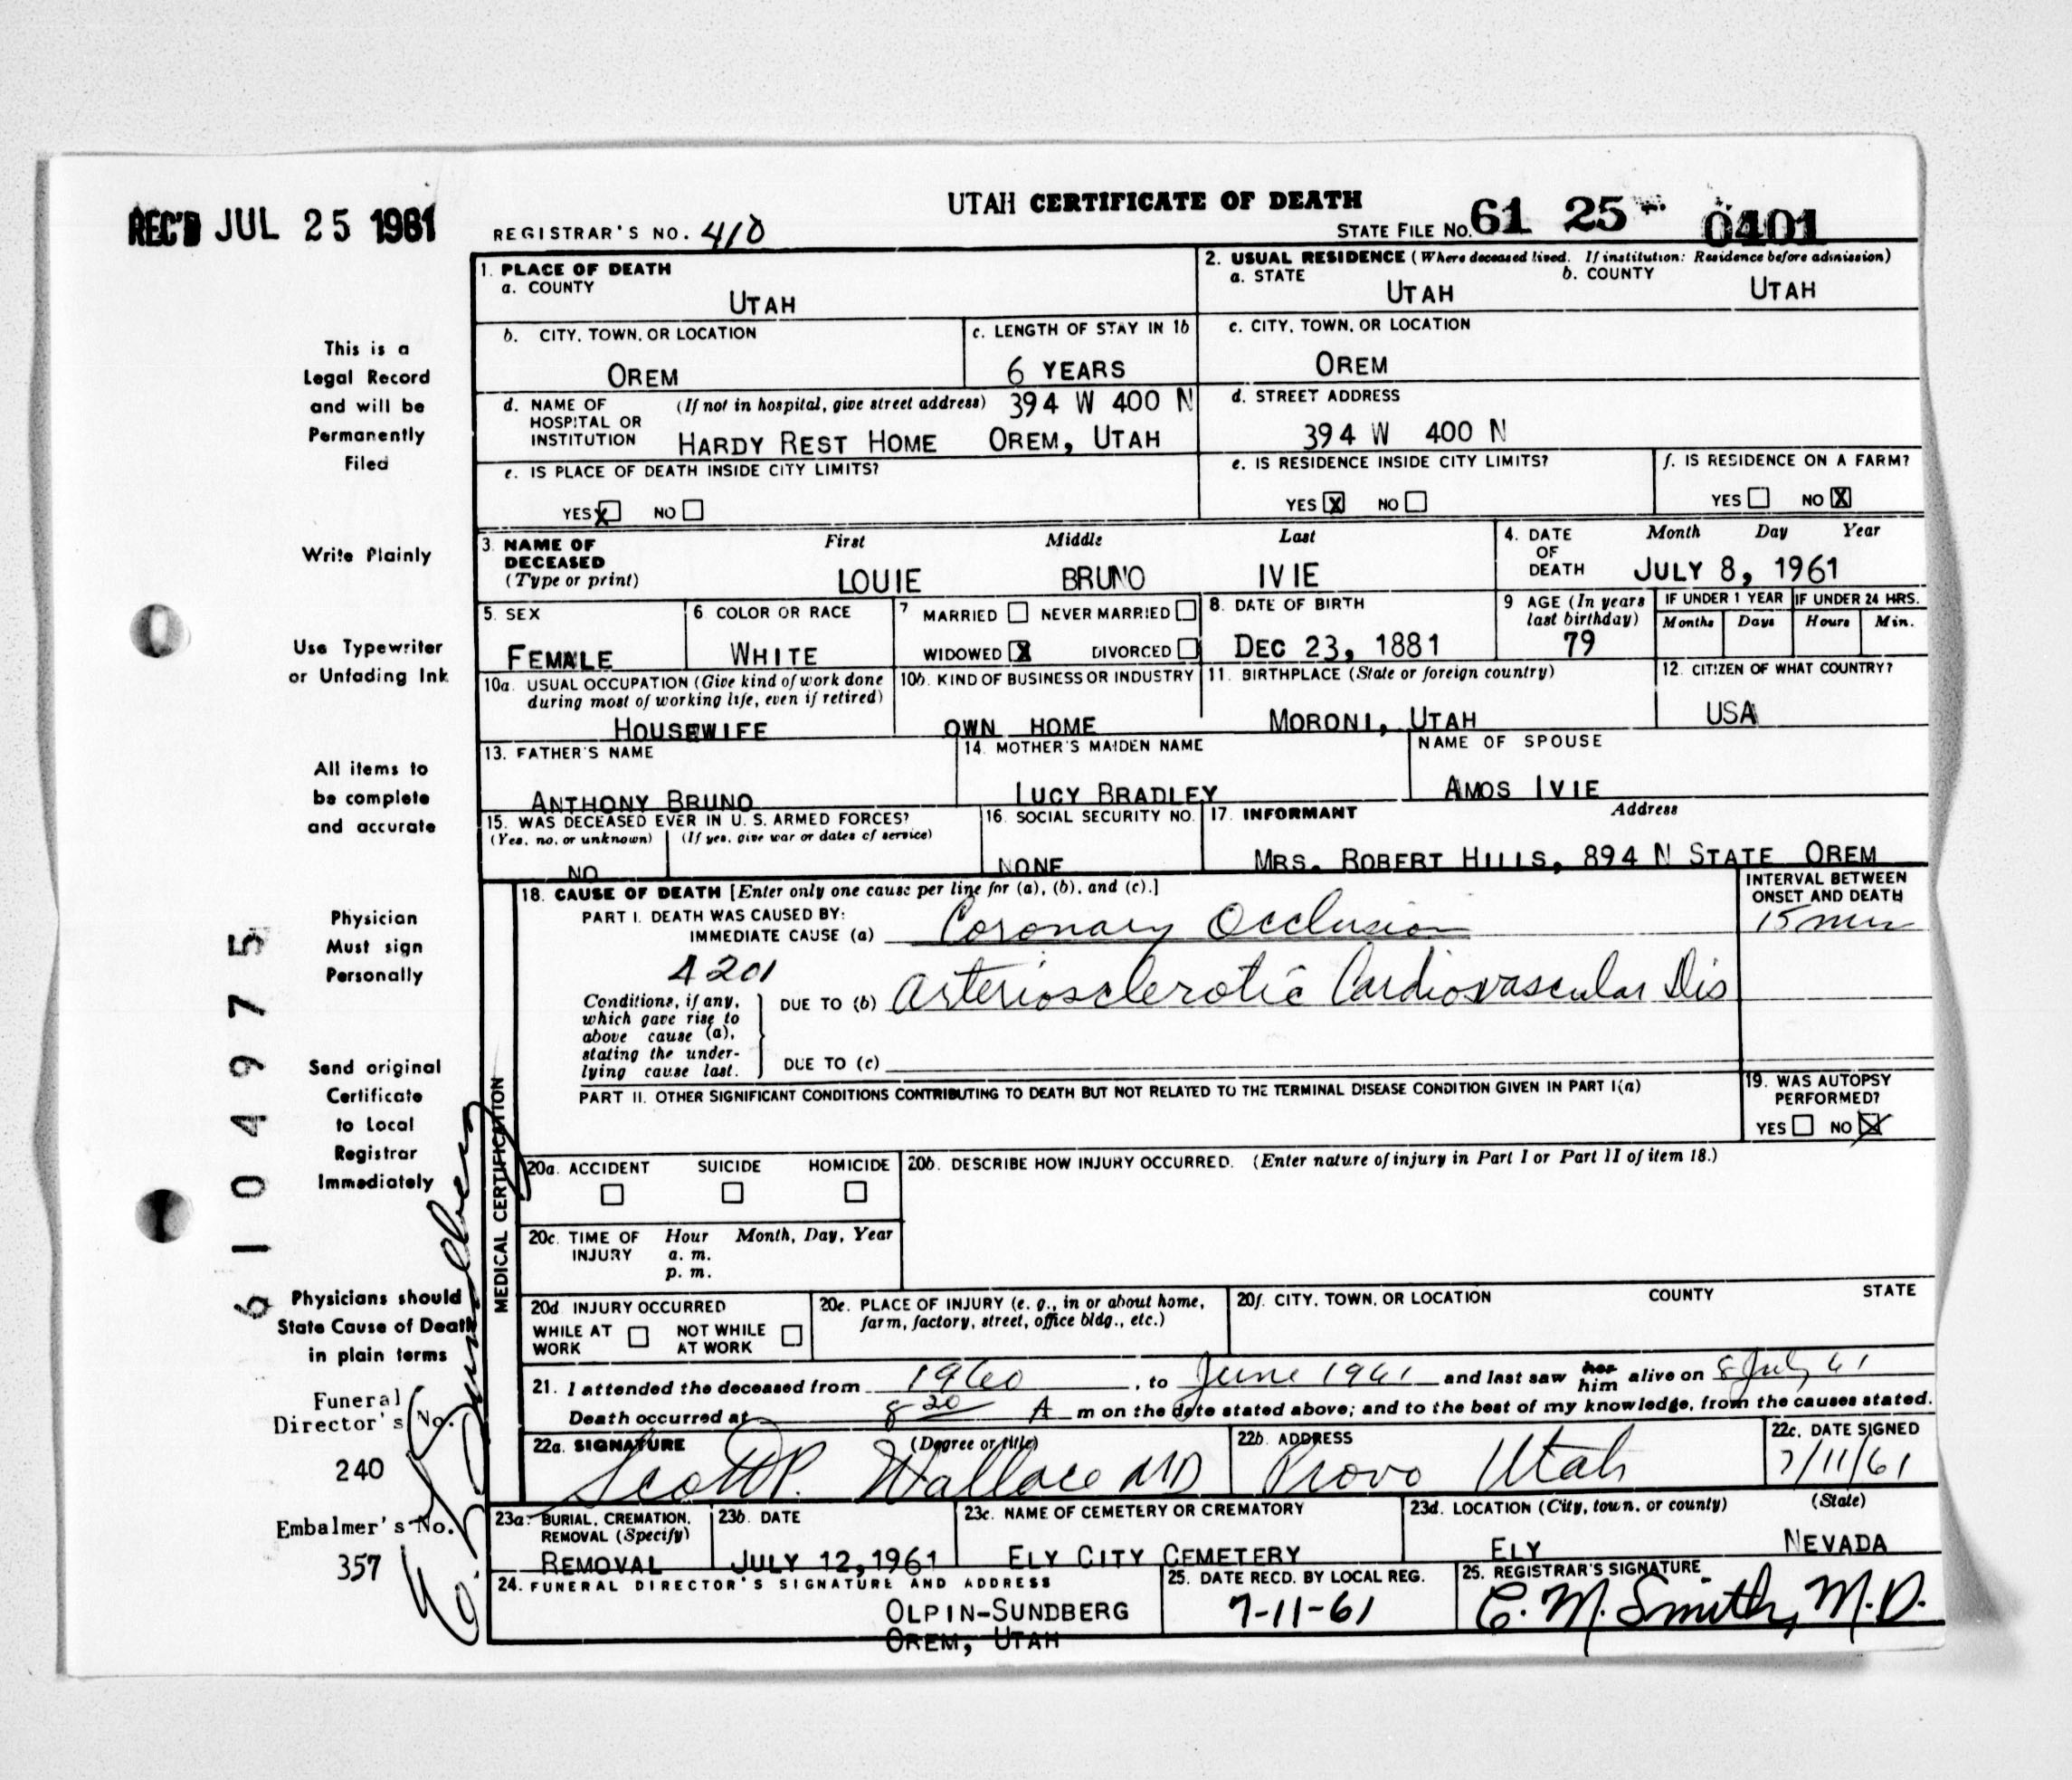 UTAH CERTIFICATE OF DEATH
REC'D JUL 25 1961
REGISTRAR'S NO. 410
STATE FILE NO. 61 25 0401
1. PLACE OF DEATH
a. COUNTY
UTAH
2. USUAL RESIDENCE (Where deceased lived. If institution: Residence before admission)
a. STATE UTAH b. COUNTY UTAH
b. CITY, TOWN, OR LOCATION
OREM
c. LENGTH OF STAY IN 1b
6 YEARS
c. CITY, TOWN, OR LOCATION
OREM
d. NAME OF HOSPITAL OR INSTITUTION (If not in hospital, give street address) 394 W 400 N
HARDY REST HOME OREM, UTAH
d. STREET ADDRESS
394 W 400 N
e. IS PLACE OF DEATH INSIDE CITY LIMITS?
YES X NO
e. IS RESIDENCE INSIDE CITY LIMITS?
YES X NO
f. IS RESIDENCE ON A FARM?
YES NO X
3. NAME OF DECEASED (Type or print)
First Middle Last
LOUIE BRUNO IVIE
4. DATE OF DEATH Month Day Year
JULY 8, 1961
5. SEX
FEMALE
6. COLOR OR RACE
WHITE
7 MARRIED NEVER MARRIED
WIDOWED X DIVORCED
8. DATE OF BIRTH
DEC 23, 1881
9 AGE (In years last birthday)
79
IF UNDER 1 YEAR
Months Days
IF UNDER 24 HRS.
Hours Min.
10a. USUAL OCCUPATION (Give kind of work done during most of working life, even if retired)
HOUSEWIFE
10b. KIND OF BUSINESS OR INDUSTRY
OWN HOME
11. BIRTHPLACE (State or foreign country)
MORONI, UTAH
12. CITIZEN OF WHAT COUNTRY?
USA
13. FATHER'S NAME
ANTHONY BRUNO
14. MOTHER'S MAIDEN NAME
LUCY BRADLEY
NAME OF SPOUSE
AMOS IVIE
15. WAS DECEASED EVER IN U. S. ARMED FORCES?
(Yes, no, or unknown) (If yes, give war or dates of service)
NO
16. SOCIAL SECURITY NO.
NONE
17. INFORMANT Address
MRS. ROBERT HILLS, 894 N STATE OREM
MEDICAL CERTIFICATION
18. CAUSE OF DEATH [Enter only one cause per line for (a), (b), and (c).]
INTERVAL BETWEEN ONSET AND DEATH
PART I. DEATH WAS CAUSED BY:
IMMEDIATE CAUSE (a) Coronary Occlusion 15 min
4201
Conditions, if any, which gave rise to above cause (a), stating the underlying cause last.
DUE TO (b) Arteriosclerotic Cardiovascular Dis
DUE TO (c)
PART II. OTHER SIGNIFICANT CONDITIONS CONTRIBUTING TO DEATH BUT NOT RELATED TO THE TERMINAL DISEASE CONDITION GIVEN IN PART I(a)
19. WAS AUTOPSY PERFORMED?
YES NO X
20a. ACCIDENT SUICIDE HOMICIDE
20b. DESCRIBE HOW INJURY OCCURRED. (Enter nature of injury in Part I or Part II of item 18.)
20c. TIME OF INJURY Hour Month, Day, Year
a. m.
p. m.
20d. INJURY OCCURRED
WHILE AT WORK NOT WHILE AT WORK
20e. PLACE OF INJURY (e. g., in or about home, farm, factory, street, office bldg., etc.)
20f. CITY, TOWN, OR LOCATION COUNTY STATE
21. I attended the deceased from 1960, to June 1961 and last saw her him alive on 8 July 61
Death occurred at 8 20 A m on the date stated above; and to the best of my knowledge, from the causes stated.
22a. SIGNATURE (Degree or title)
Scott P. Wallace MD
22b. ADDRESS
Provo Utah
22c. DATE SIGNED
7/11/61
23a. BURIAL, CREMATION, REMOVAL (Specify)
REMOVAL
23b. DATE
JULY 12, 1961
23c. NAME OF CEMETERY OR CREMATORY
ELY CITY CEMETERY
23d. LOCATION (City, town, or county) (State)
ELY NEVADA
24. FUNERAL DIRECTOR'S SIGNATURE AND ADDRESS
OLPIN-SUNDBERG
OREM, UTAH
25. DATE RECD. BY LOCAL REG.
7-11-61
25. REGISTRAR'S SIGNATURE
C. M. Smith, M.D.
This is a
Legal Record
and will be
Permanently
Filed
Write Plainly
Use Typewriter
or Unfading Ink
All items to
be complete
and accurate
Physician
Must sign
Personally
Send original
Certificate
to Local
Registrar
Immediately
Physicians should
State Cause of Death
in plain terms
Funeral
Director's No.
240
Embalmer's No.
357
6104975